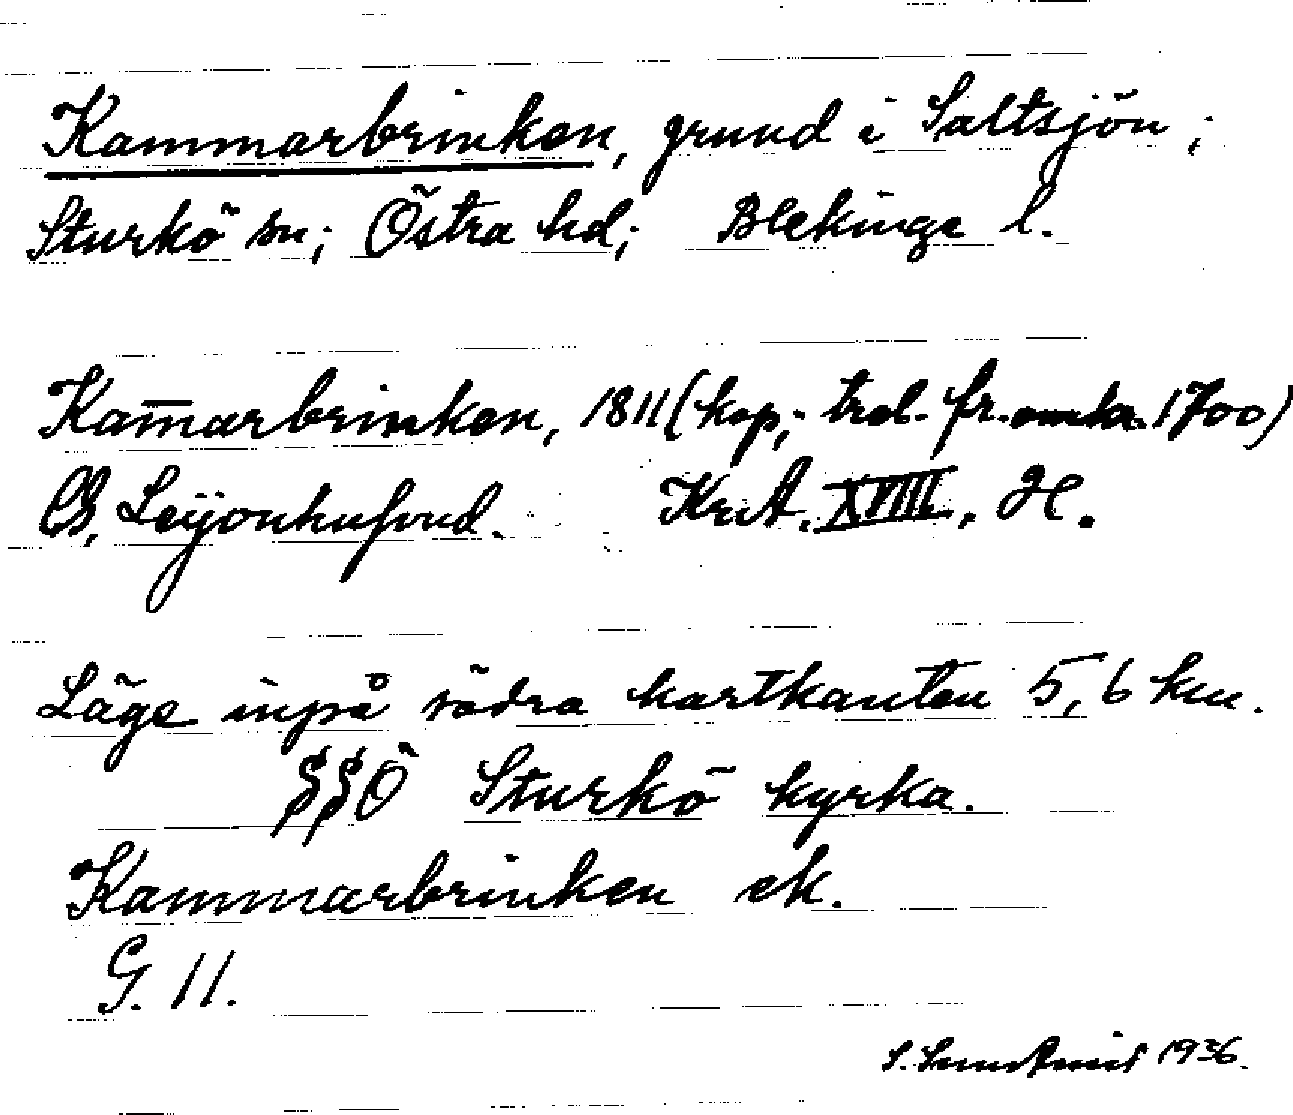 Kammarbrinken, grund i Saltsjön;
Sturkö sn; Östra hd; Blekinge l.
Kam̅arbrinken, 1811 (kop; trol. fr. omkr. 1700)
CG, Leijonhufvud. KrA. XVIII, H.
Läge inpå södra kartkanten 5,6 km.
SSÖ Sturkö kyrka.
Kammarbrinken ek.
G. 11.
S. 1936.